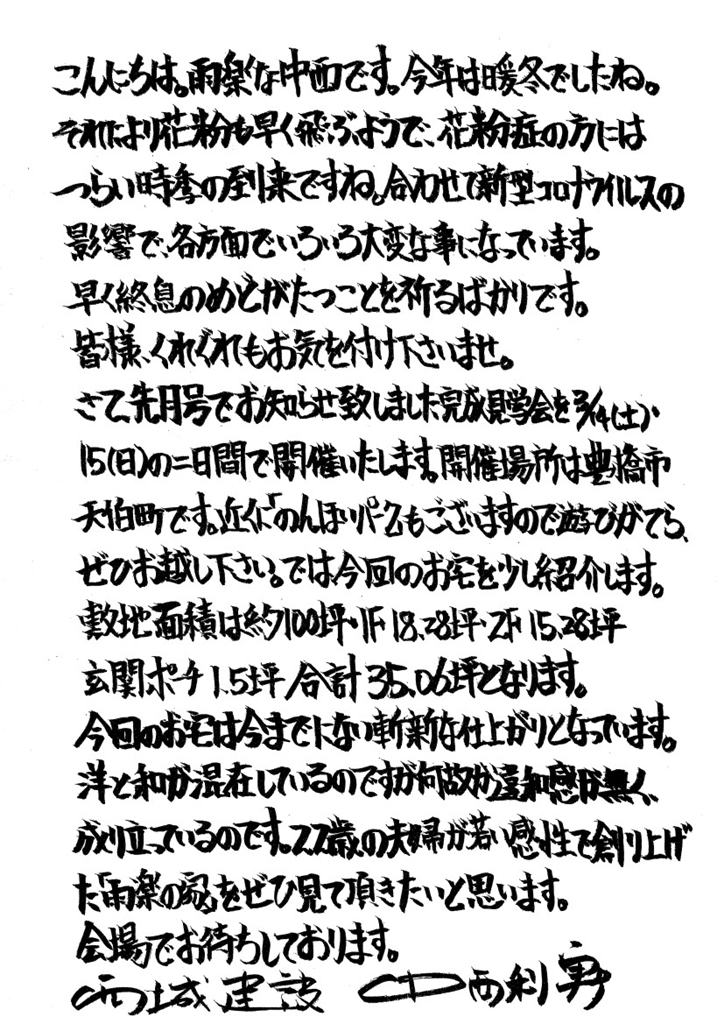 こんにちは。雨楽な中西です。今年は暖冬でしたね。
それにより花粉も早く飛ぶようで、花粉症の方には
つらい時季の到来ですね。合わせて新型コロナウイルスの
影響で、各方面でいろいろ大変な事になっています。
早く終息のめどがたつことを祈るばかりです。
皆様、くれぐれもお気を付け下さいませ。
さて、先月号でお知らせ致しました完成見学会を3/14(土)・
15(日)の二日間で開催いたします。開催場所は豊橋市
天伯町です。近くに「のんほいパーク」もございますので遊びがてら、
ぜひお越し下さい。では、今回のお宅を少し紹介します。
敷地面積は約100坪・1F 18.28坪・2F 15.28坪
玄関ポーチ 1.5坪/合計 35.06坪となります。
今回のお宅は今までにない斬新な仕上がりとなっています。
洋と和が混在しているのですが何故か違和感が無く、
成り立っているのです。22歳の夫婦が若い感性で創り上げ
た「雨楽の家」をぜひ見て頂きたいと思います。
会場でお待ちしております。
西城建設 中西利